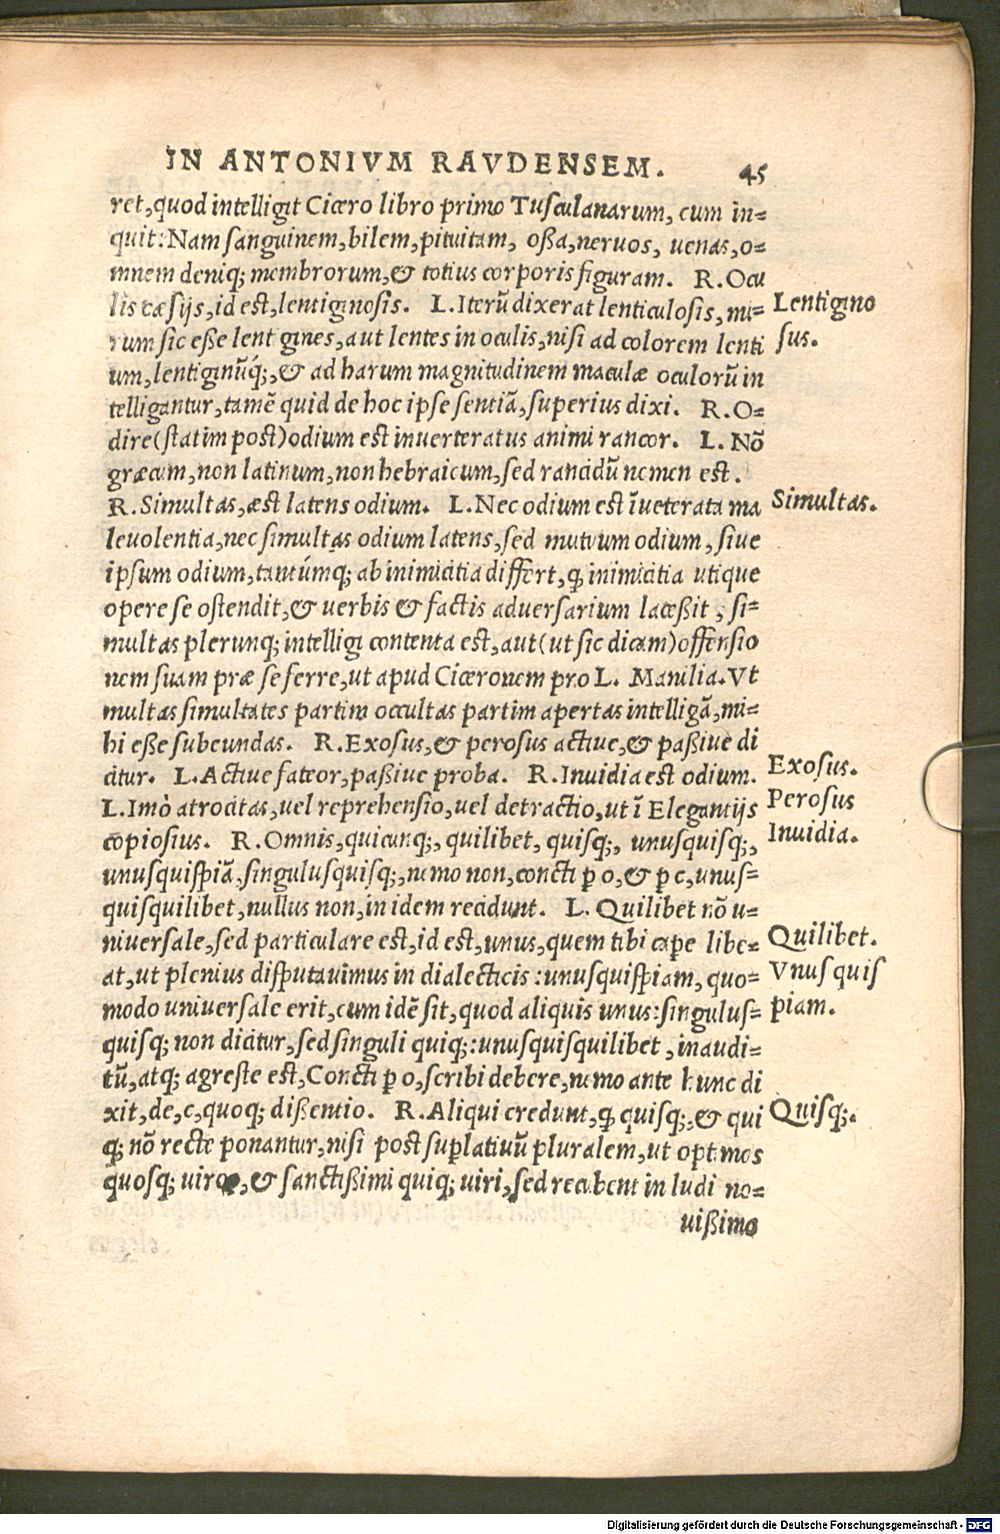 IN ANTONIVM RAVDENSEM. 45
ret, quod intelligit Cicero libro primo Tusculanarum, cum in=
quit: Nam sanguinem, bilem, pituitam, oßa, neruos, uenas, o=
mnem deniq; membrorum, & totius corporis figuram. R. Ocu
lis cæsijs, id est, lentiginosis. L. Iterū dixerat lenticulosis, mi=
Lentigino
rum sic eße lentigines, aut lentes in oculis, nisi ad colorem lenti
sus.
um, lentiginūq́;, & ad harum magnitudinem maculæ oculorū in
telligantur, tamē quid de hoc ipse sentiā, superius dixi. R. O=
dire (statim post) odium est inuerteratus animi rancor. L. Nō
græcum, non latinum, non hebraicum, sed rancidū nomen est.
R. Simultas, æst latens odium. L. Nec odium est īueterata ma
Simultas.
leuolentia, nec simultas odium latens, sed mutuum odium, siue
ipsum odium, tantúmq; ab inimicitia differt, ꝙ inimicitia utique
opere se ostendit, & uerbis & factis aduersarium laceßit, si=
multas plerunq; intelligi contenta est, aut (ut sic dicam) offensio
nem suam præ se ferre, ut apud Ciceronem pro L. Manilia. Vt
multas simultates partim occultas partim apertas intelligā, mi=
hi eße subeundas. R. Exosus, & perosus actiue, & paßiue di
citur. L. Actiue fateor, paßiue proba. R. Inuidia est odium.
Exosus.
L. Imò atrocitas, uel reprehensio, uel detractio, ut ī Elegantijs
Perosus
copiosius. R. Omnis, quicunq;, quilibet, quisq;, unusquisq;,
Inuidia.
unusquispiā, singulusquisq;, nemo non, concti ꝑ o, & ꝑ c, unus=
quisquilibet, nullus non, in idem recidunt. L. Quilibet nō u=
niuersale, sed particulare est, id est, unus, quem tibi cape libe=
Quilibet.
at, ut plenius disputauimus in dialecticis: unusquispiam, quo=
Vnusquis
modo uniuersale erit, cum idē sit, quod aliquis unus: singulus=
piam.
quisq; non dicitur, sed singuli quiq;: unusquisquilibet, inaudi=
tū, atq; agreste est, Concti ꝑ o, scribi debere, nemo ante hunc di
xit, de, c, quoq; dißentio. R. Aliqui credunt, ꝙ quisq;, & qui
Quisq;.
q; nō recte ponantur, nisi post suꝑlatiuū pluralem, ut optimos
quosq; uiros, & sanctißimi quiq; uiri, sed recubent in ludi no=
uißimo
Digitalisierung gefördert durch die Deutsche Forschungsgemeinschaft - DFG